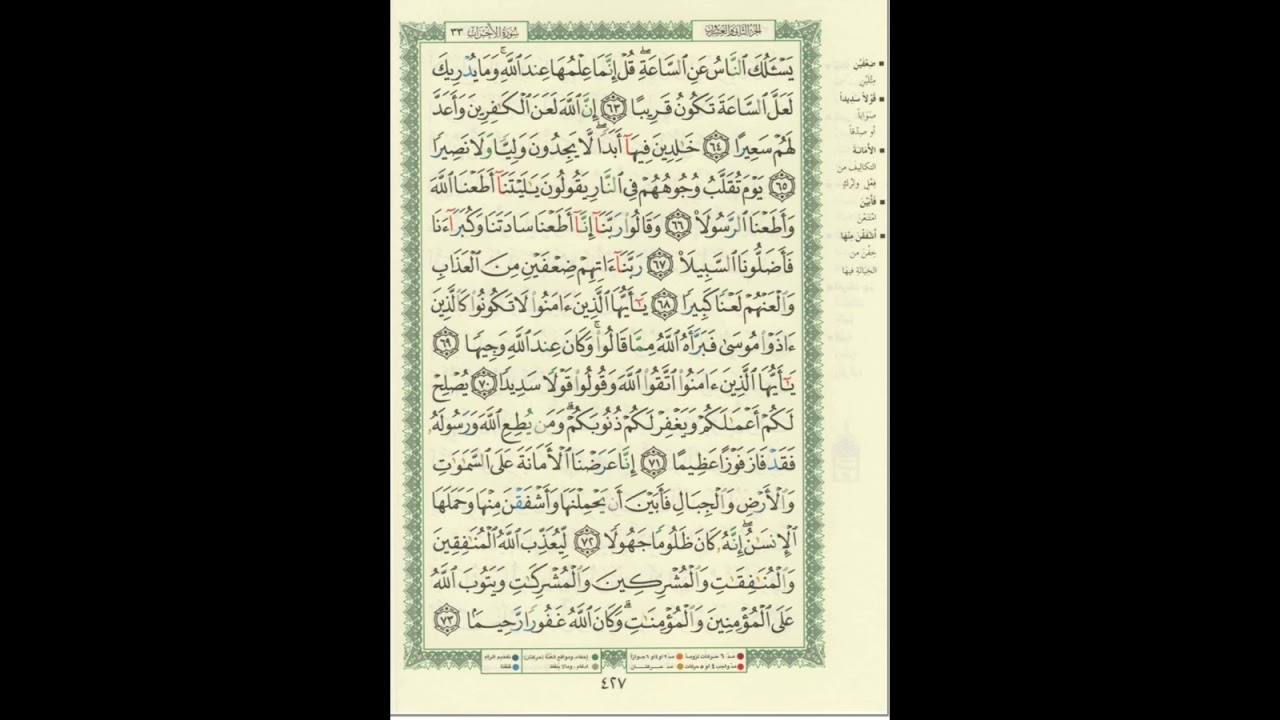 سُورَةُ الأَحْزَابِ ٣٣
الجُزْءُ الثَّانِي وَالعِشْرُونَ
يَسْـَٔلُكَ النَّاسُ عَنِ السَّاعَةِ ۖ قُلْ إِنَّمَا عِلْمُهَا عِندَ اللَّهِ ۚ وَمَا يُدْرِيكَ
لَعَلَّ السَّاعَةَ تَكُونُ قَرِيبًا ٦٣ إِنَّ اللَّهَ لَعَنَ الْكَٰفِرِينَ وَأَعَدَّ
لَهُمْ سَعِيرًا ٦٤ خَٰلِدِينَ فِيهَآ أَبَدًا ۖ لَّا يَجِدُونَ وَلِيًّا وَلَا نَصِيرًا
٦٥ يَوْمَ تُقَلَّبُ وُجُوهُهُمْ فِي النَّارِ يَقُولُونَ يَٰلَيْتَنَآ أَطَعْنَا اللَّهَ
وَأَطَعْنَا الرَّسُولَا۠ ٦٦ وَقَالُوا۟ رَبَّنَآ إِنَّآ أَطَعْنَا سَادَتَنَا وَكُبَرَآءَنَا
فَأَضَلُّونَا السَّبِيلَا۠ ٦٧ رَبَّنَآ ءَاتِهِمْ ضِعْفَيْنِ مِنَ الْعَذَابِ
وَالْعَنْهُمْ لَعْنًا كَبِيرًا ٦٨ يَٰٓأَيُّهَا الَّذِينَ ءَامَنُوا۟ لَا تَكُونُوا۟ كَالَّذِينَ
ءَاذَوْا۟ مُوسَىٰ فَبَرَّأَهُ اللَّهُ مِمَّا قَالُوا۟ ۚ وَكَانَ عِندَ اللَّهِ وَجِيهًا ٦٩
يَٰٓأَيُّهَا الَّذِينَ ءَامَنُوا۟ اتَّقُوا۟ اللَّهَ وَقُولُوا۟ قَوْلًا سَدِيدًا ٧٠ يُصْلِحْ
لَكُمْ أَعْمَٰلَكُمْ وَيَغْفِرْ لَكُمْ ذُنُوبَكُمْ ۗ وَمَن يُطِعِ اللَّهَ وَرَسُولَهُۥ
فَقَدْ فَازَ فَوْزًا عَظِيمًا ٧١ إِنَّا عَرَضْنَا الْأَمَانَةَ عَلَى السَّمَٰوَٰتِ
وَالْأَرْضِ وَالْجِبَالِ فَأَبَيْنَ أَن يَحْمِلْنَهَا وَأَشْفَقْنَ مِنْهَا وَحَمَلَهَا
الْإِنسَٰنُ ۖ إِنَّهُۥ كَانَ ظَلُومًا جَهُولًا ٧٢ لِّيُعَذِّبَ اللَّهُ الْمُنَٰفِقِينَ
وَالْمُنَٰفِقَٰتِ وَالْمُشْرِكِينَ وَالْمُشْرِكَٰتِ وَيَتُوبَ اللَّهُ
عَلَى الْمُؤْمِنِينَ وَالْمُؤْمِنَٰتِ ۗ وَكَانَ اللَّهُ غَفُورًا رَّحِيمًۢا ٧٣
ضِعْفَيْنِ
مِثْلَيْنِ
قَوْلًا سَدِيداً
صَوَاباً
أو صِدْقاً
الأَمَانَةَ
التكاليفَ من
فِعْلٍ وتَرْكٍ
فَأَبَيْنَ
امْتَنَعْنَ
أَشْفَقْنَ مِنْهَا
خِفْنَ من
الخِيَانَةِ فيها
مد ٦ حركات لزوماً
مد ٢ أو ٤ أو ٦ جوازاً
مد واجب ٤ أو ٥ حركات
مد حركتان
إخفاء، ومواقع الغُنَّة (حركتان)
ادغام، وما لا يُلفَظ
تفخيم الراء
قلقلة
٤٢٧